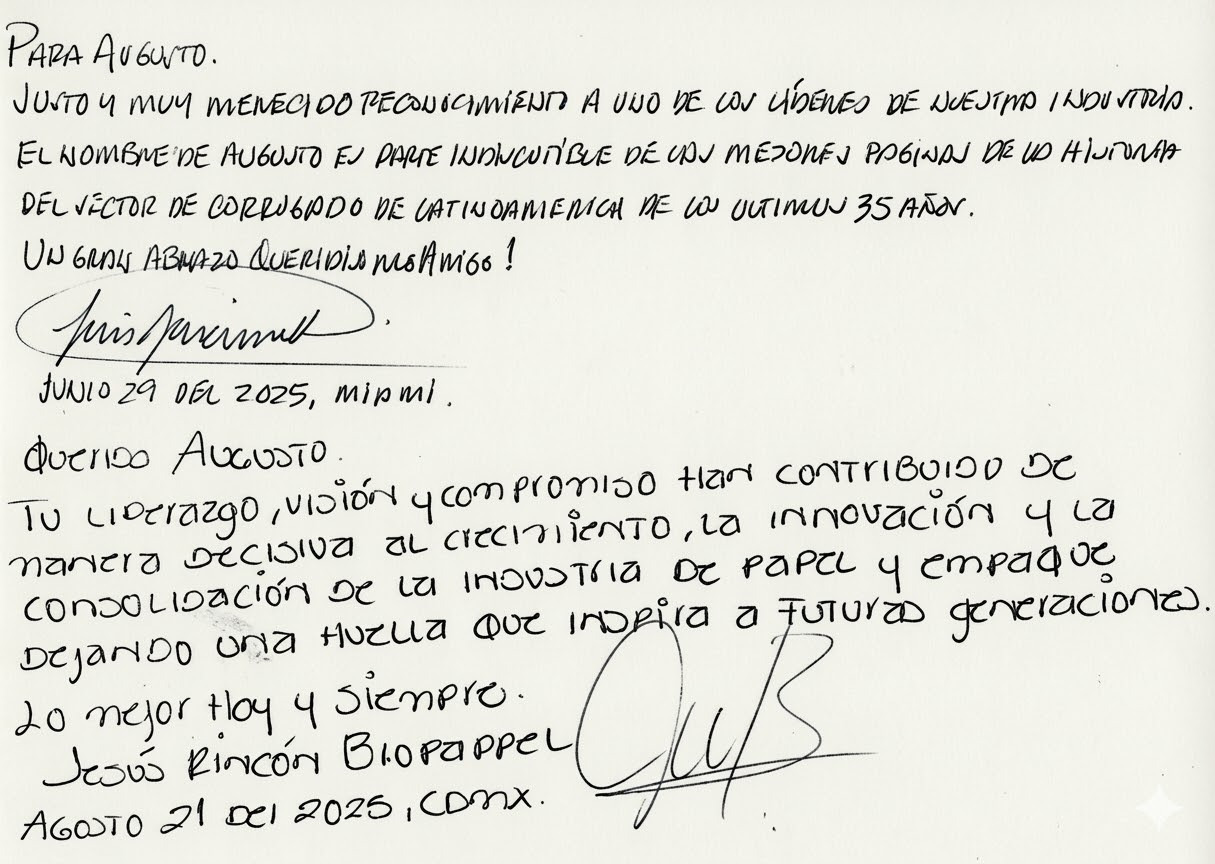 PARA AUGUSTO.
JUSTO Y MUY MERECIDO RECONOCIMIENTO A UNO DE LOS LÍDERES DE NUESTRA INDUSTRIA.
EL NOMBRE DE AUGUSTO ES PARTE INDISCUTIBLE DE LAS MEJORES PAGINAS DE LA HISTORIA
DEL SECTOR DE CORRUGADO DE LATINOAMERICA DE LOS ULTIMOS 35 AÑOS.
UN GRAN ABRAZO QUERIDISIMO AMIGO!
JUNIO 29 DEL 2025, MIAMI.
QUERIDO AUGUSTO.
TU LIDERAZGO, VISIÓN Y COMPROMISO HAN CONTRIBUIDO DE
MANERA DECISIVA AL CRECIMIENTO, LA INNOVACIÓN Y LA
CONSOLIDACIÓN DE LA INDUSTRIA DE PAPEL Y EMPAQUE
DEJANDO UNA HUELLA QUE INSPIRA A FUTURAS GENERACIONES.
LO MEJOR HOY Y SIEMPRE.
JESÚS RINCÓN BIOPAPPEL
AGOSTO 21 DEL 2025, CDMX.